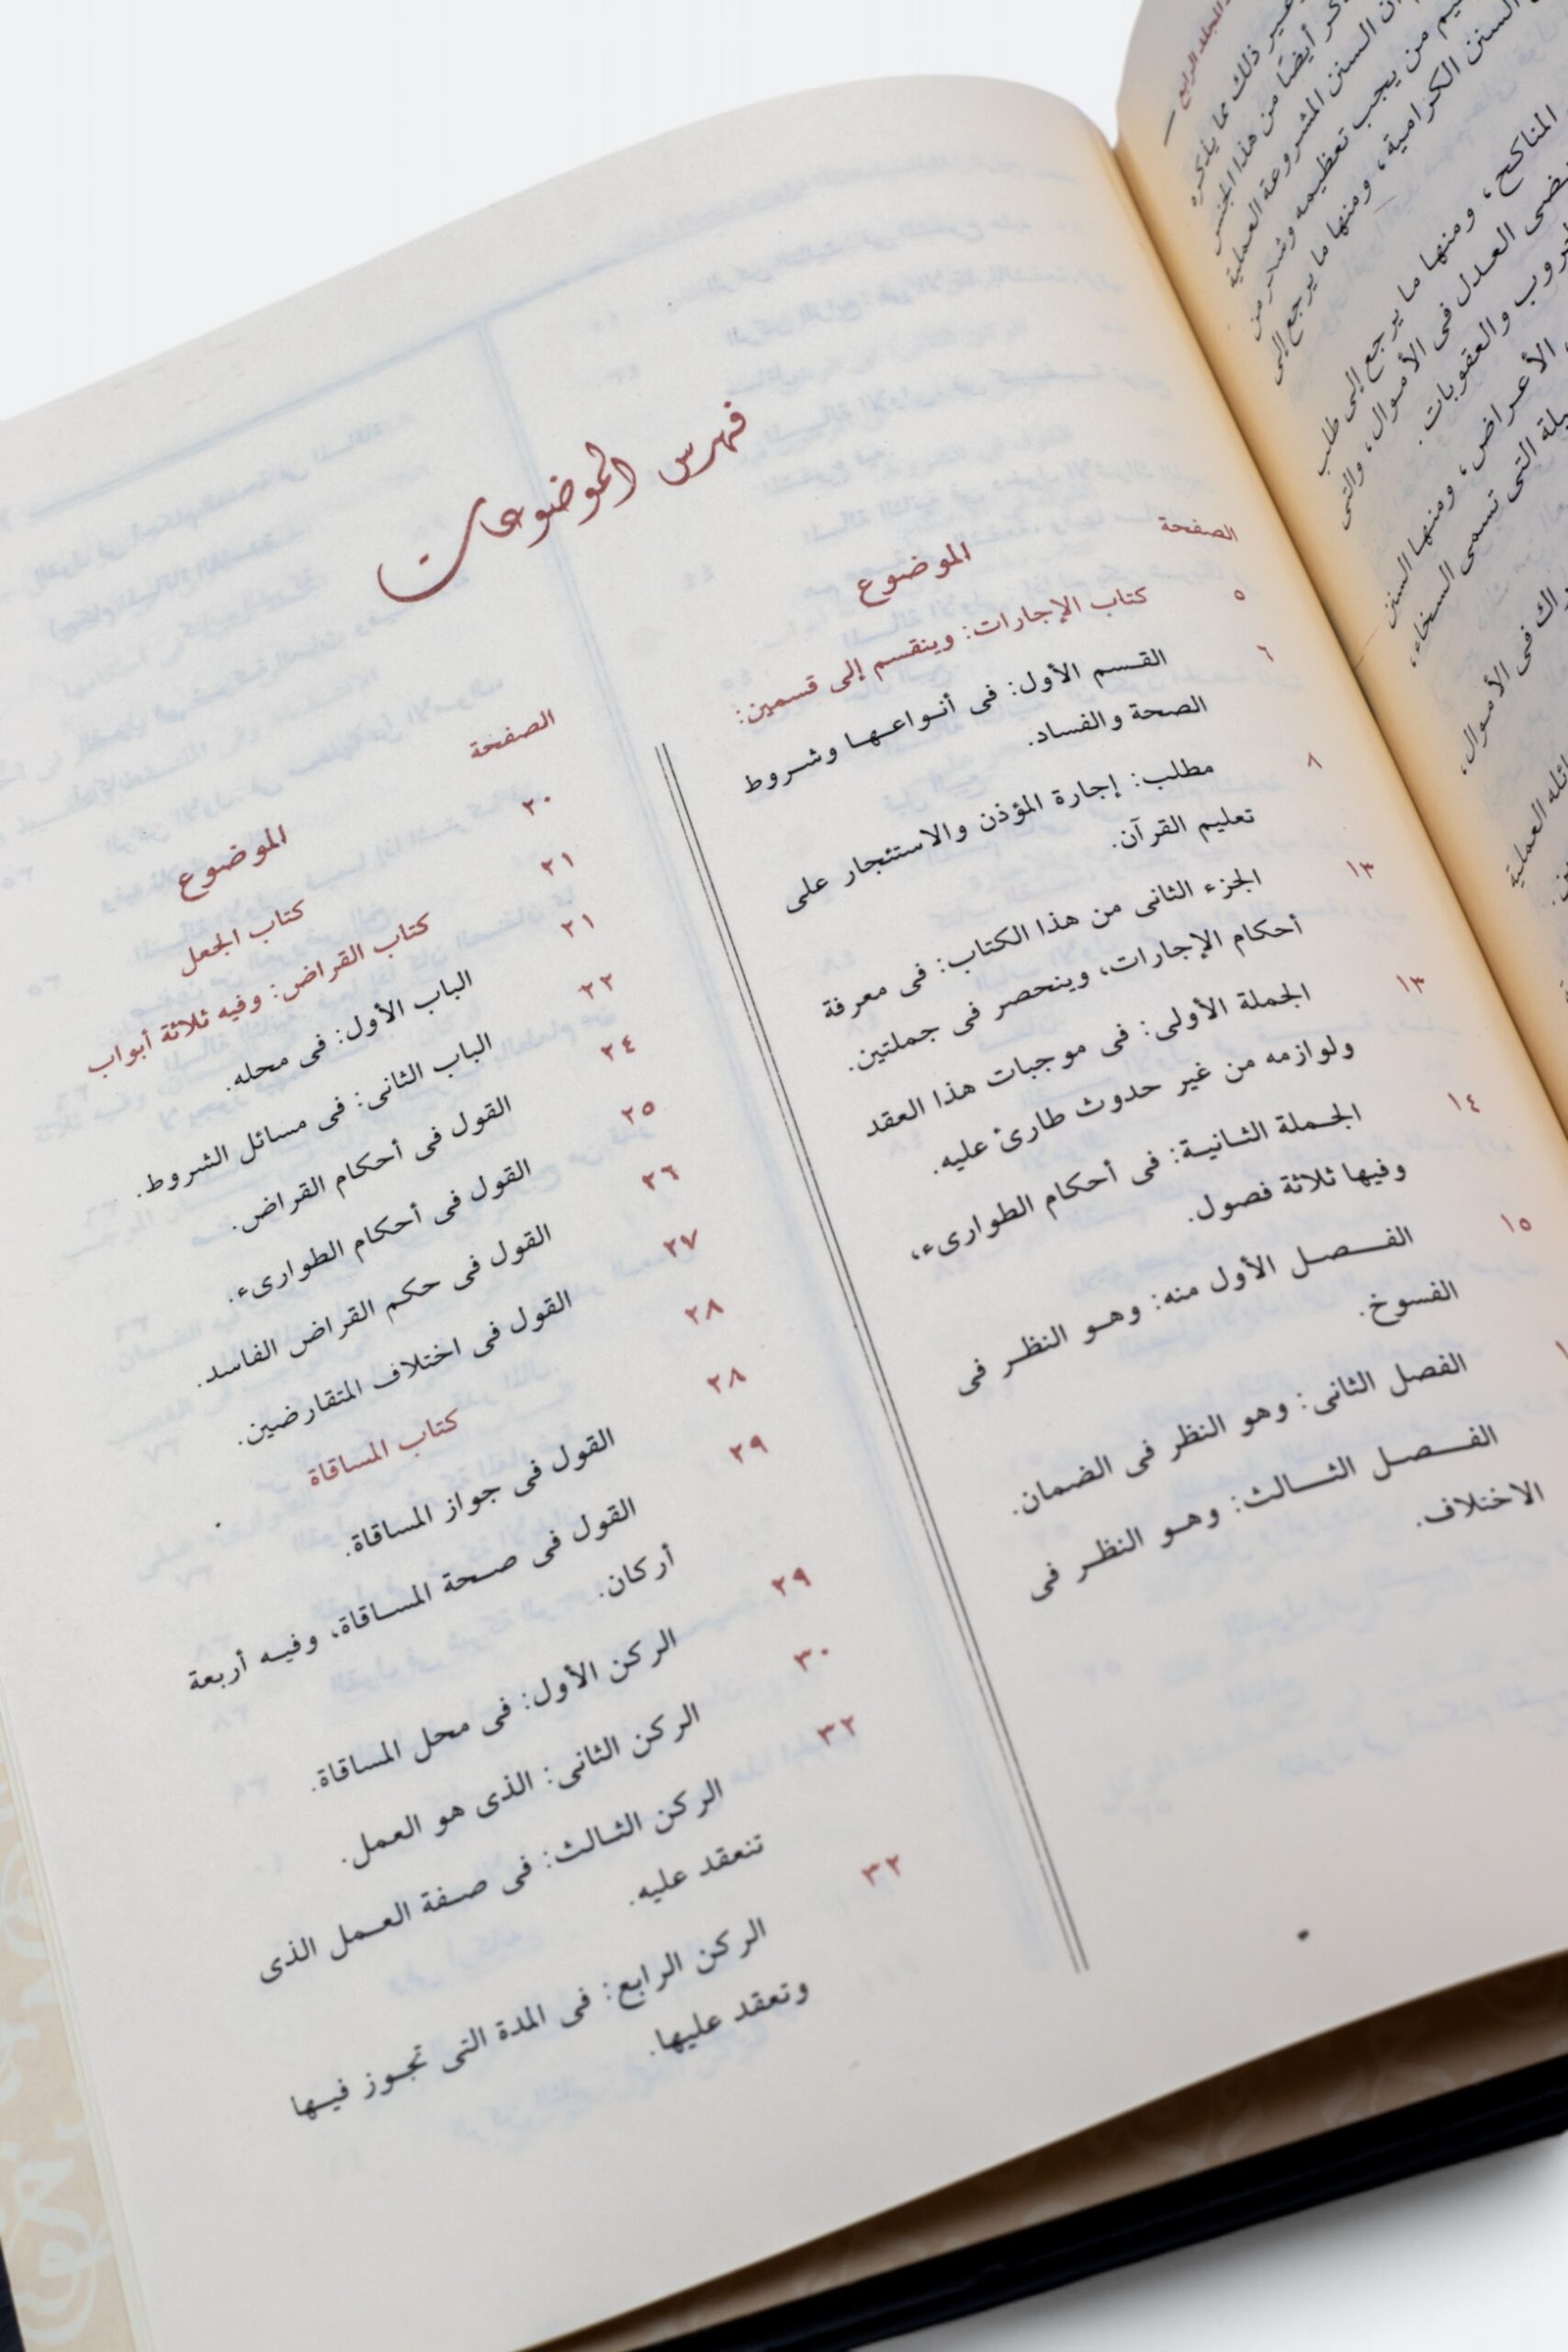 المجلد الرابع
غير ذلك مما يذكره
أيضًا من هذا الجنس
أن السنن المشروعة العملية
من يجب تعظيمه وشكر من
السنن الكرامية، ومنها ما يرجع إلى
المناكح، ومنها ما يرجع إلى طلب
العدل فى الأموال، والتى
والعقوبات.
الأعراض، ومنها السنن
التى تسمى السخاء،
فى الأموال،
العملية
فهرس الموضوعات
الصفحة الموضوع
٥ كتاب الإجارات: وينقسم إلى قسمين:
٦ القسم الأول: فى أنواعها وشروط
الصحة والفساد.
٨ مطلب: إجارة المؤذن والاستئجار على
تعليم القرآن.
١٣ الجزء الثانى من هذا الكتاب: فى معرفة
أحكام الإجارات، وينحصر فى جملتين.
١٣ الجملة الأولى: فى موجبات هذا العقد
ولوازمه من غير حدوث طارئ عليه.
١٤ الجملة الثانية: فى أحكام الطوارىء،
وفيها ثلاثة فصول.
١٥ الفصل الأول منه: وهو النظر فى
الفسوخ.
الفصل الثانى: وهو النظر فى الضمان.
الفصل الثالث: وهو النظر فى
الاختلاف.
الصفحة الموضوع
٢٠ كتاب الجعل
٢١ كتاب القراض: وفيه ثلاثة أبواب
٢١ الباب الأول: فى محله.
٢٢ الباب الثانى: فى مسائل الشروط.
٢٤ القول فى أحكام القراض.
٢٥ القول فى أحكام الطوارىء.
٢٦ القول فى حكم القراض الفاسد.
٢٧ القول فى اختلاف المتقارضين.
٢٨ كتاب المساقاة
٢٨ القول فى جواز المساقاة.
٢٩ القول فى صحة المساقاة، وفيه أربعة
أركان.
٢٩ الركن الأول: فى محل المساقاة.
٣٠ الركن الثانى: الذى هو العمل.
٣٢ الركن الثالث: فى صفة العمل الذى
تنعقد عليه.
٣٢ الركن الرابع: فى المدة التى تجوز فيها
وتعقد عليها.